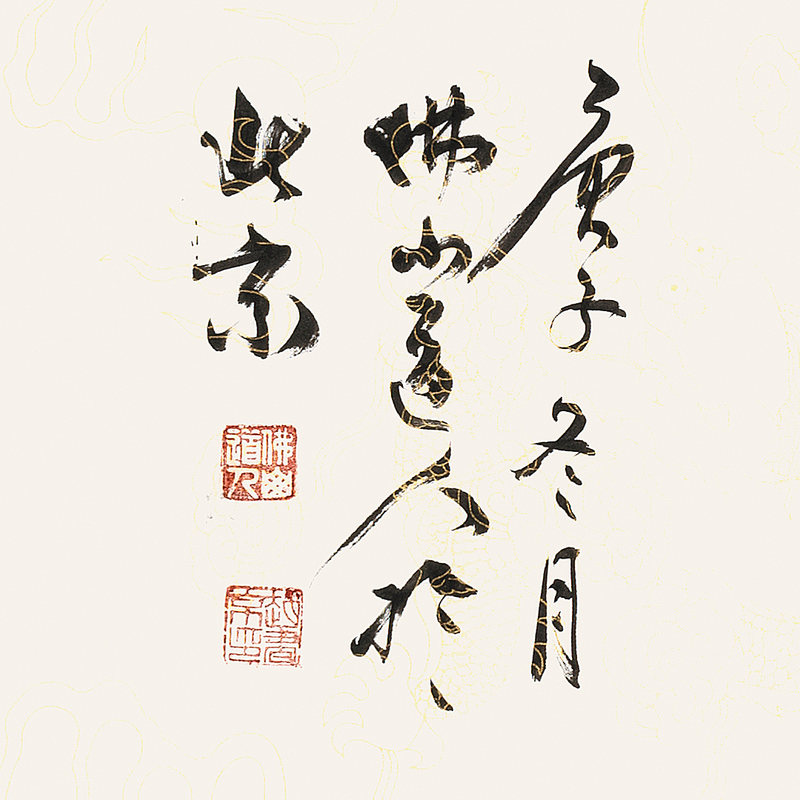 庚子冬月
佛山道人於
北京
佛山
道人